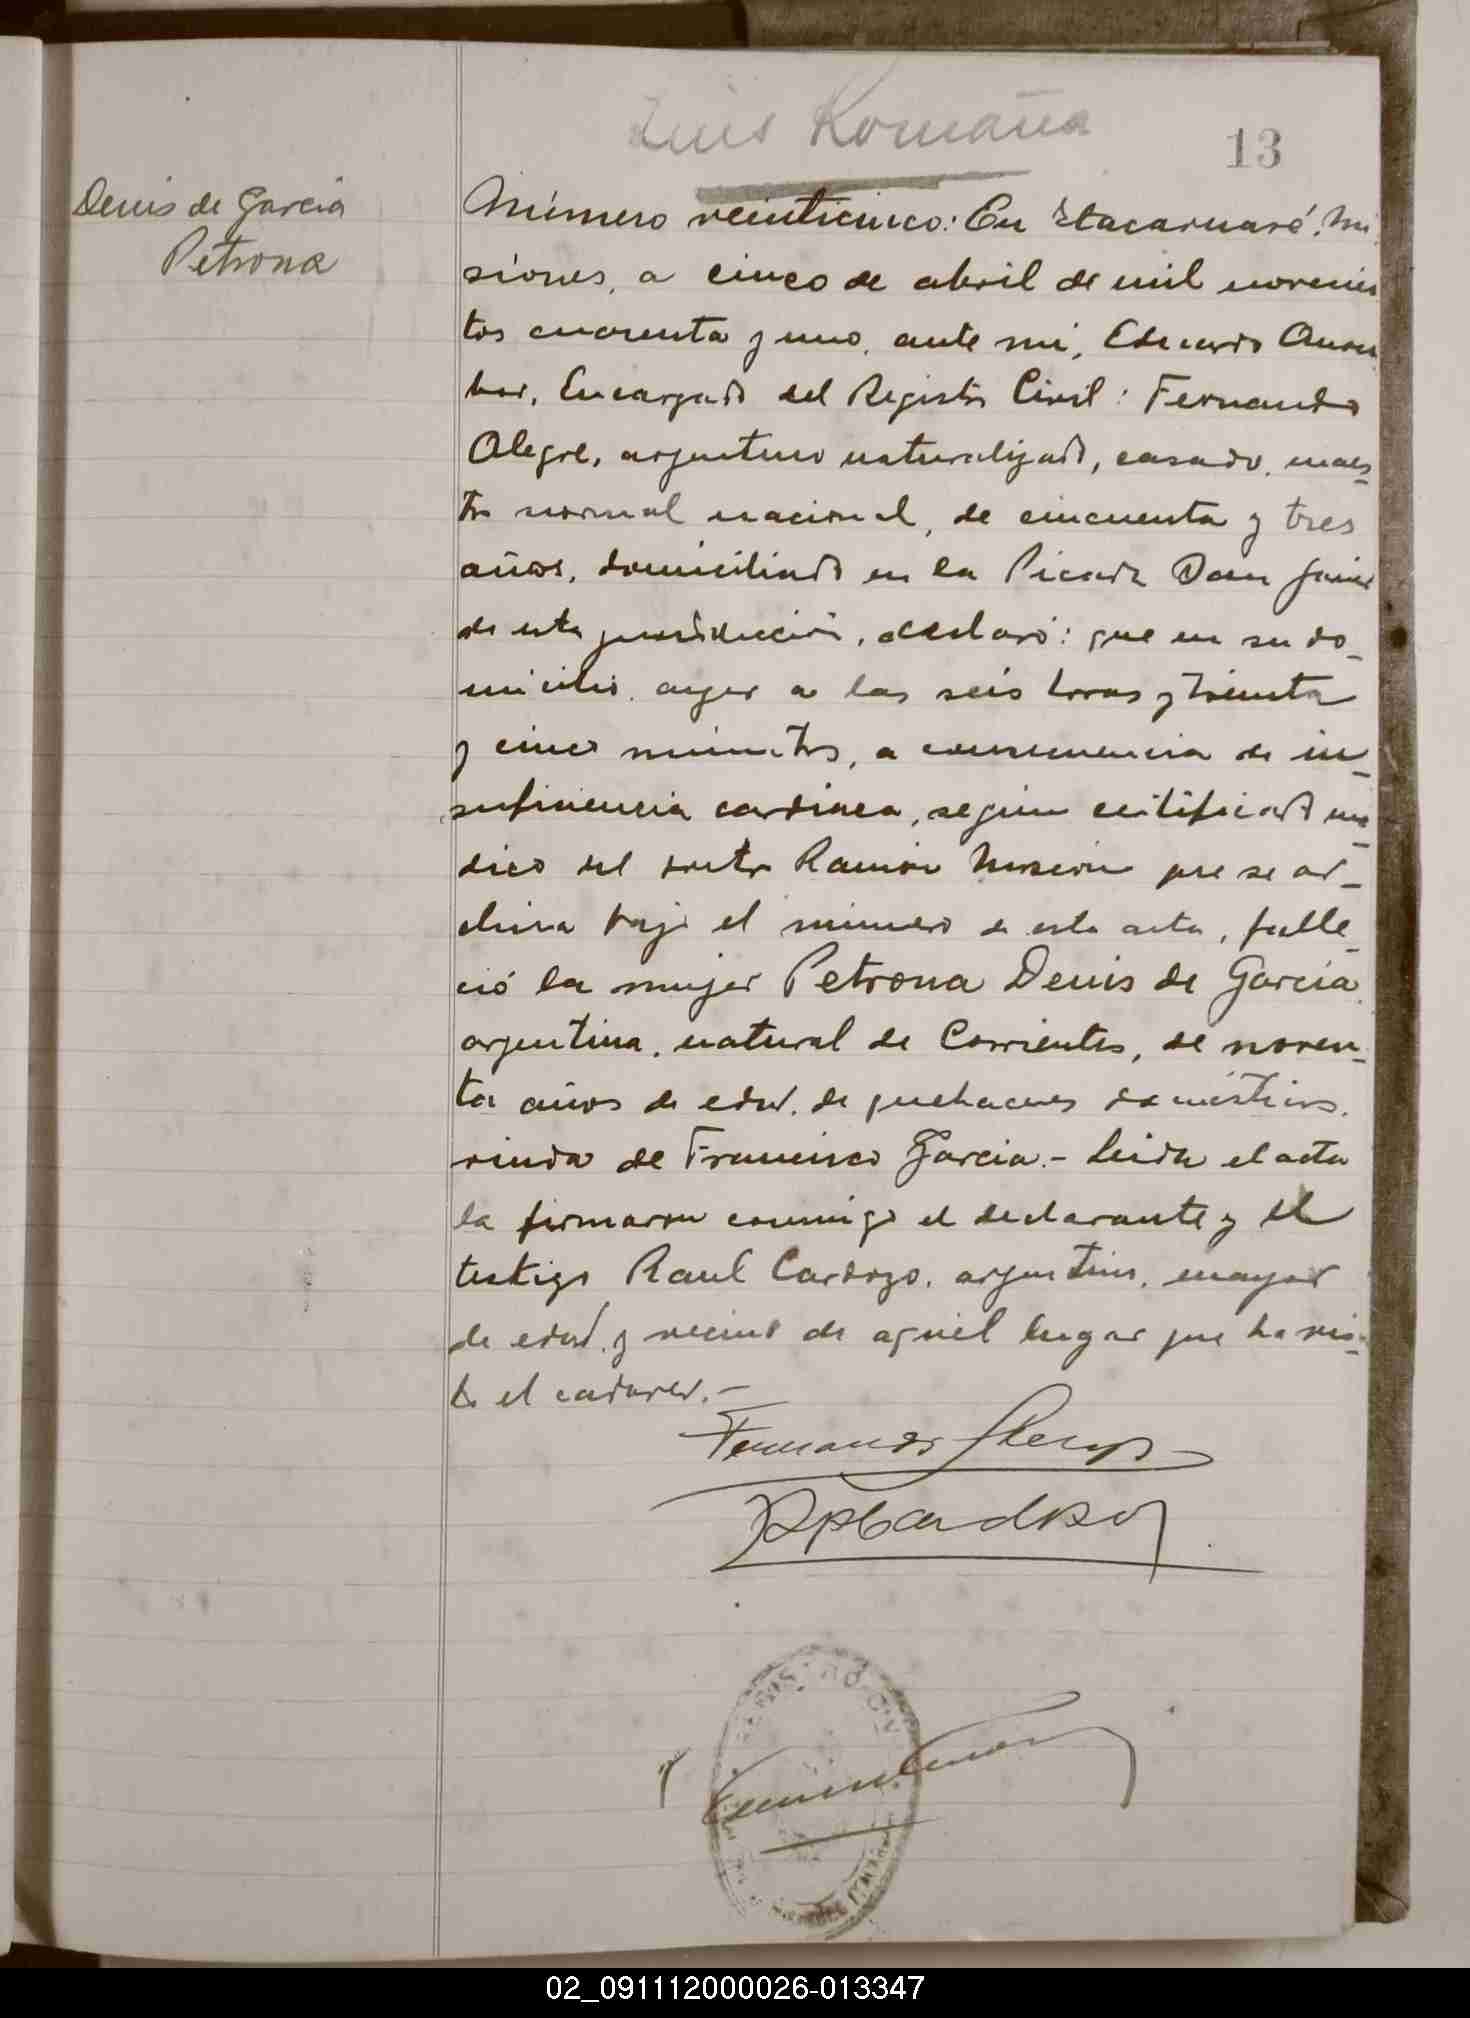 Luis Romaña
13
Denis de Garcia
Petrona
Número veinticinco: En Itacaruaré, Mi
siones, a cinco de abril de mil novecien
tos cuarenta y uno, ante mi, Eduardo
Encargado del Registro Civil: Fernando
Alegre, argentino naturalizado, casado, maes-
tro normal nacional, de cincuenta y tres
años, domiciliado en la Picada San Javier
de esta jurisdicción, declaró: que en su do-
micilio, ayer a las seis horas y treinta
y cinco minutos, a consecuencia de in-
suficiencia cardiaca, según certificado mé-
dico del doctor Ramón que se ar-
chiva bajo el número de esta acta, falle-
ció la mujer Petrona Denis de Garcia,
argentina, natural de Corrientes, de noven-
ta años de edad, de quehaceres domésticos,
viuda de Francisco Garcia.- Leida el acta
la firmaron conmigo el declarante y el
testigo Raul Cardozo, argentino, mayor
de edad, y vecino de aquel lugar que ha vis-
to el cadaver.-
Fernando Alegre
RpCardozo
02_091112000026-013347